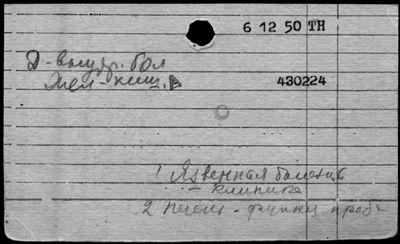 6 12 50 TH
Д-внутр. бол
430224
Жел-киш.
1 Язвенная болезнь
- клиника
2 печень - функц проб